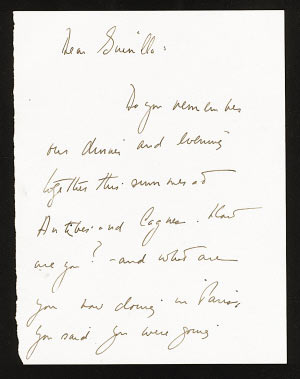 Dear Gunilla:
Do you remember
our dinner and evening
together this summer at
Antibes and Cagnes. How
are you? - and what are
you now doing in Paris,
You said you were going